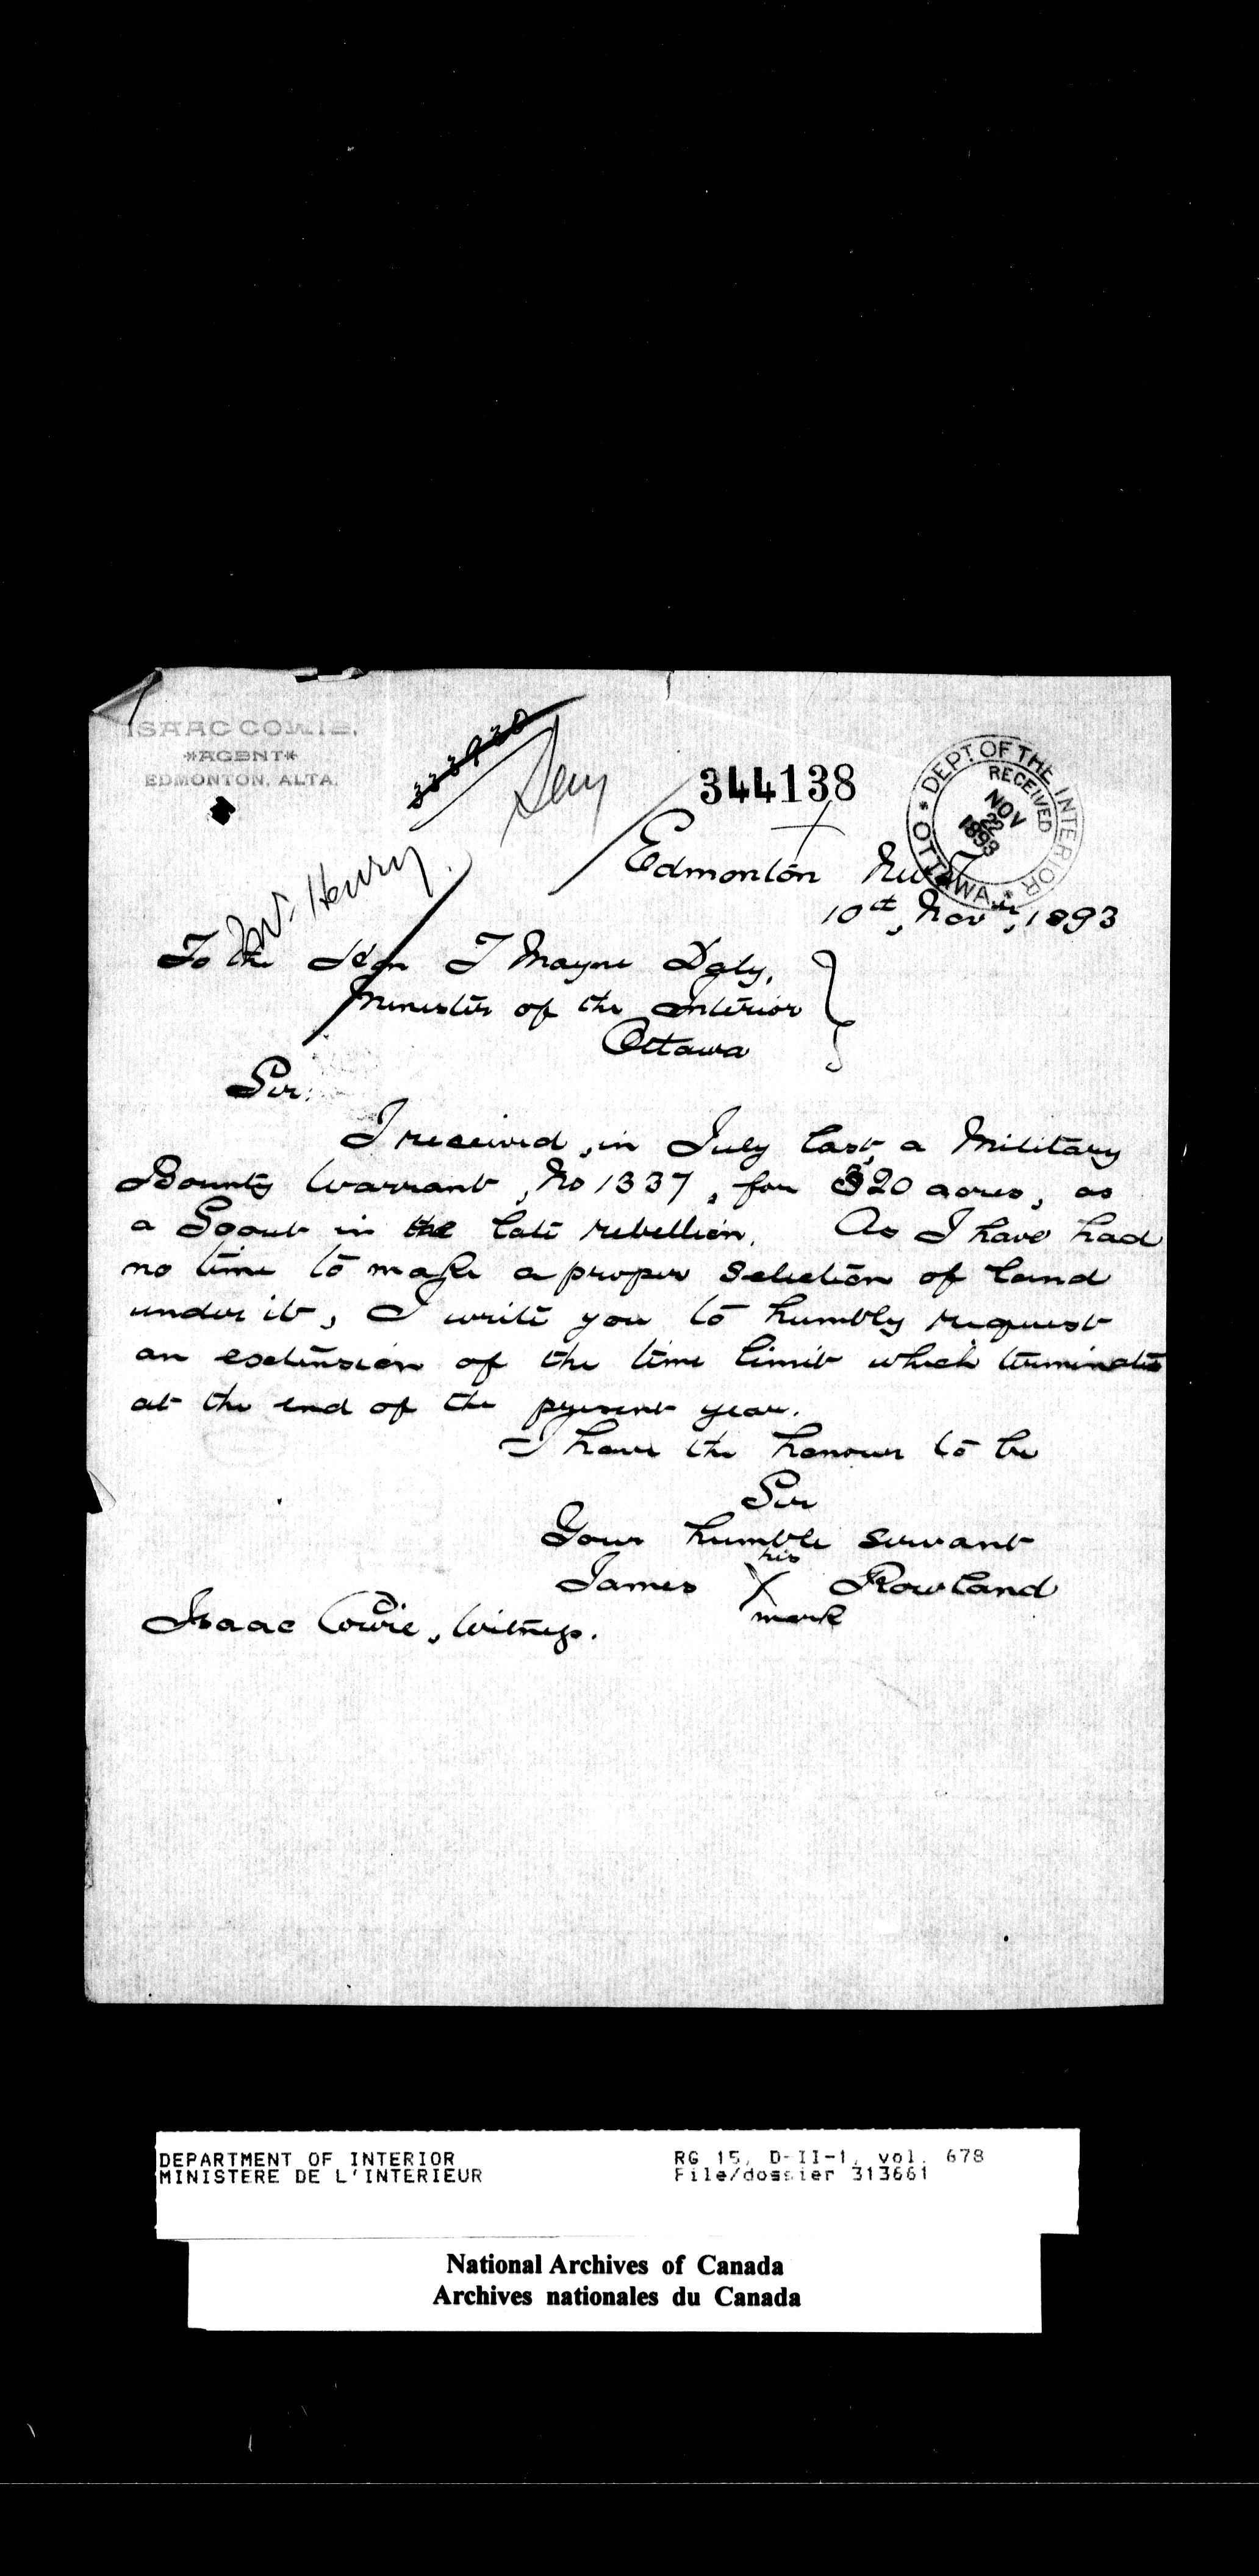 ISAAC COWIE,
*AGENT*
EDMONTON, ALTA.
344138
DEPT. OF THE INTERIOR
RECEIVED
NOV
1893
OTTAWA
Mr Henry
Edmonton
10th, Nov, 1893
To the Hon T Mayne Daly,
Minister of the Interior
Ottawa
Sir:
I received, in July last, a Military
Bounty Warrant, No 1337, for 320 acres, as
a Scout in the late rebellion. As I have had
no time to make a proper selection of land
under it, I write you to humbly request
an extension of the time limit which terminates
at the end of the present year.
I have the honour to be
Sir
Your humble servant
his
James X Rowland
mark
Isaac Cowie, Witness.
DEPARTMENT OF INTERIOR
MINISTERE DE L'INTERIEUR
RG 15, D-II-1, vol. 678
File/dossier 313661
National Archives of Canada
Archives nationales du Canada